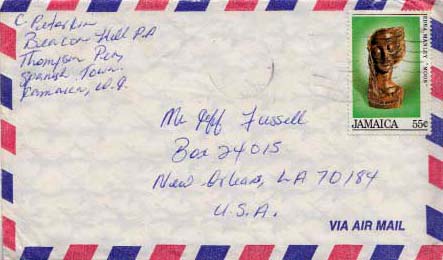 C Peterkin
Beacon Hill P.A
Thompson Pen
Spanish Town
Jamaica, W.I.
EDNA MANLEY "MOON"
JAMAICA 55¢
Mr Jeff Fussell
Box 24015
New Orleans, LA 70184
U.S.A.
VIA AIR MAIL